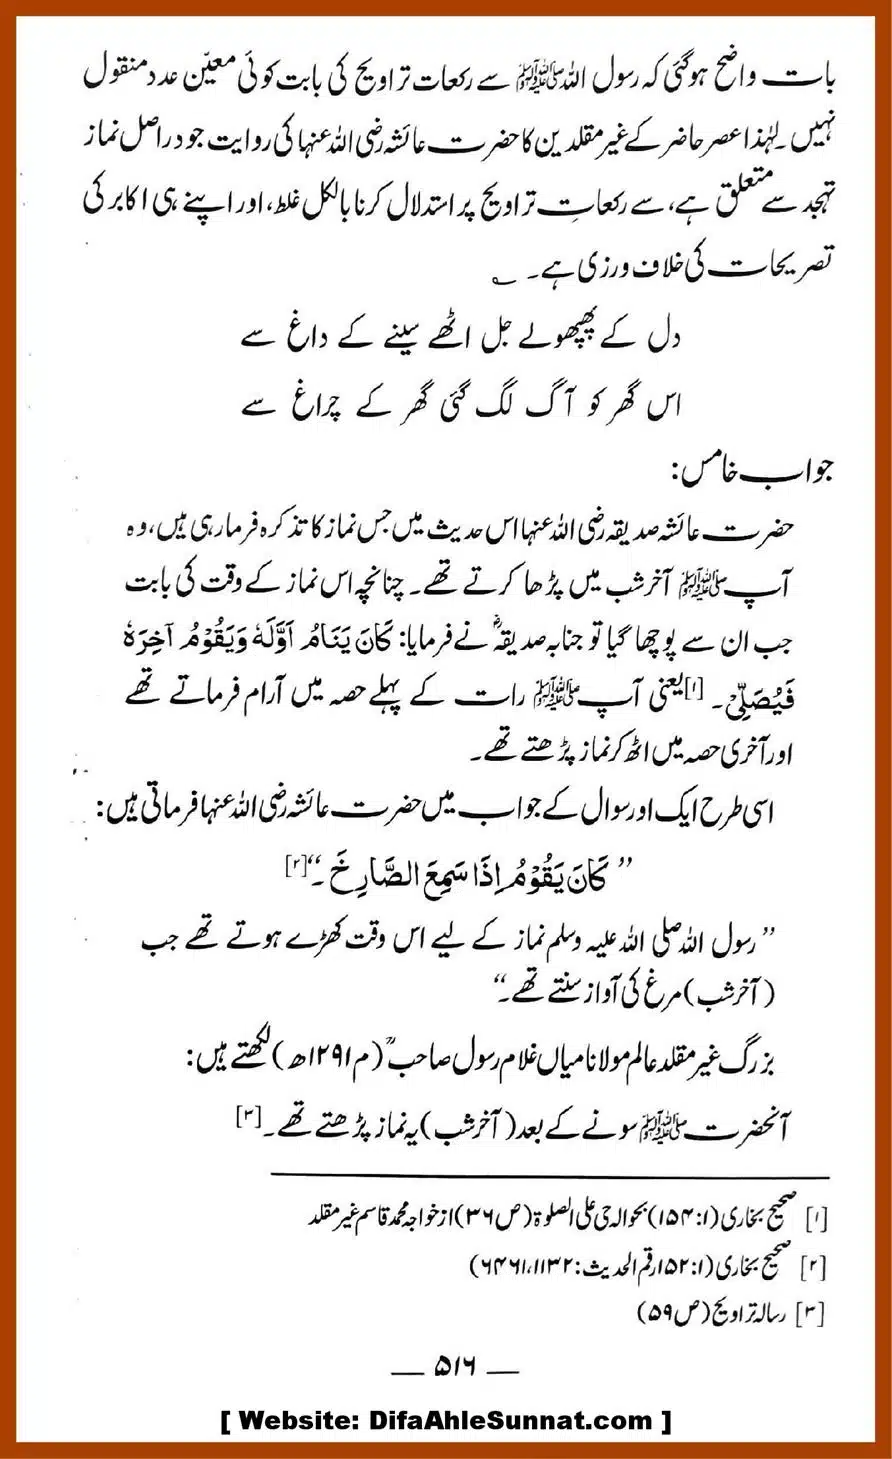 بات واضح ہوگئی کہ رسول اللہ ﷺ سے رکعات تراویح کی بابت کوئی معیّن عدد منقول
نہیں۔ لہٰذا عصر حاضر کے غیر مقلدین کا حضرت عائشہ رضی اللہ عنہا کی روایت جو دراصل نماز
تہجد سے متعلق ہے، سے رکعاتِ تراویح پر استدلال کرنا بالکل غلط، اور اپنے ہی اکابر کی
تصریحات کی خلاف ورزی ہے۔ ؎
دل کے پھپھولے جل اٹھے سینے کے داغ سے
اس گھر کو آگ لگ گئی گھر کے چراغ سے
جواب خامس:
حضرت عائشہ صدیقہ رضی اللہ عنہا اس حدیث میں جس نماز کا تذکرہ فرما رہی ہیں، وہ
آپ ﷺ آخر شب میں پڑھا کرتے تھے۔ چنانچہ اس نماز کے وقت کی بابت
جب ان سے پوچھا گیا تو جنابہ صدیقہؓ نے فرمایا: كَانَ يَنَامُ اَوَّلَهٗ وَيَقُوْمُ اٰخِرَهٗ
فَيُصَلِّيْ۔ [۱] یعنی آپ ﷺ رات کے پہلے حصہ میں آرام فرماتے تھے
اور آخری حصہ میں اٹھ کر نماز پڑھتے تھے۔
اسی طرح ایک اور سوال کے جواب میں حضرت عائشہ رضی اللہ عنہا فرماتی ہیں:
”كَانَ يَقُوْمُ اِذَا سَمِعَ الصَّارِخَ۔“ [۲]
”رسول اللہ صلی اللہ علیہ وسلم نماز کے لیے اس وقت کھڑے ہوتے تھے جب
(آخر شب) مرغ کی آواز سنتے تھے۔“
بزرگ غیر مقلد عالم مولانا میاں غلام رسول صاحبؒ (م ۱۲۹۱ھ) لکھتے ہیں:
آنحضرت ﷺ سونے کے بعد (آخر شب) یہ نماز پڑھتے تھے۔ [۳]
[۱] صحیح بخاری (۱:۱۵۴) بحوالہ حی علی الصلوٰۃ (ص ۳۶) از خواجہ محمد قاسم غیر مقلد
[۲] صحیح بخاری (۱:۱۵۲ رقم الحدیث: ۱۱۳۲، ۶۴۶۱)
[۳] رسالہ تراویح (ص ۵۹)
— ۵۱۶ —
[ Website: DifaAhleSunnat.com ]